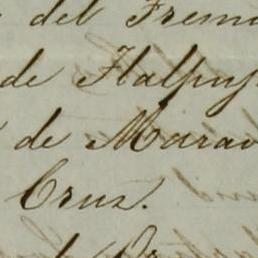 del Frem
de Tlalpuj
de Marav
Cruz.